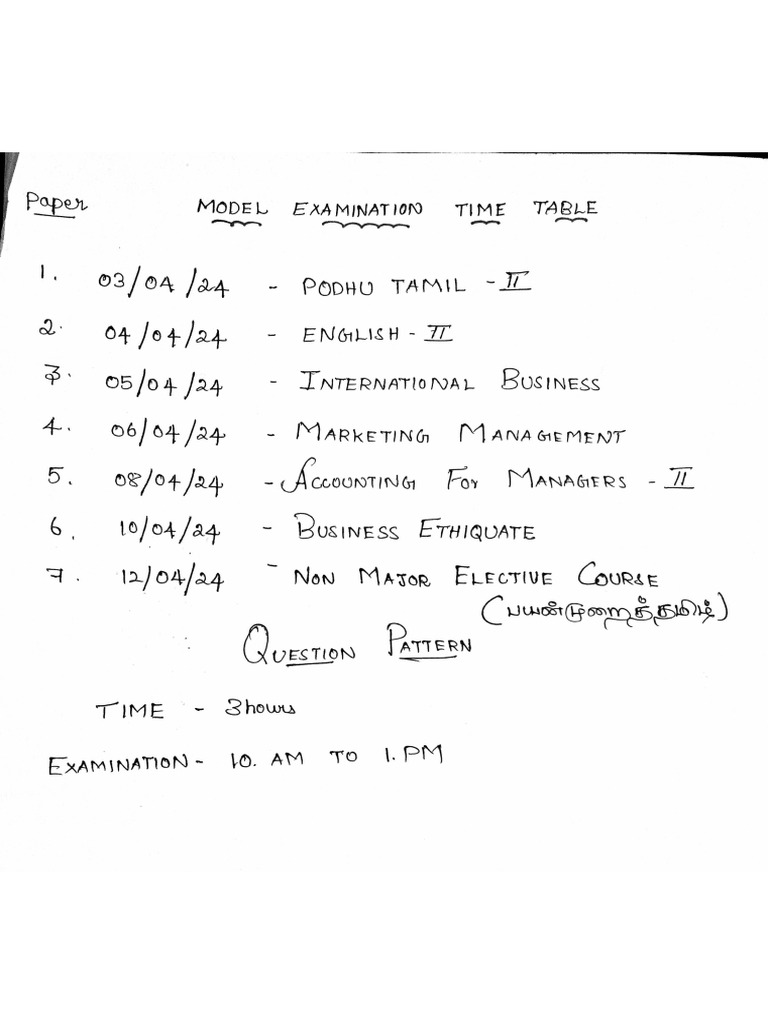 Paper MODEL EXAMINATION TIME TABLE
1. 03/04/24 - PODHU TAMIL - II
2. 04/04/24 - ENGLISH - II
3. 05/04/24 - INTERNATIONAL BUSINESS
4. 06/04/24 - MARKETING MANAGEMENT
5. 08/04/24 - ACCOUNTING FOR MANAGERS - II
6. 10/04/24 - BUSINESS ETHIQUATE
7. 12/04/24 - NON MAJOR ELECTIVE COURSE
(பயன்முறைத்தமிழ்)
QUESTION PATTERN
TIME - 3hours
EXAMINATION - 10. AM TO 1. PM